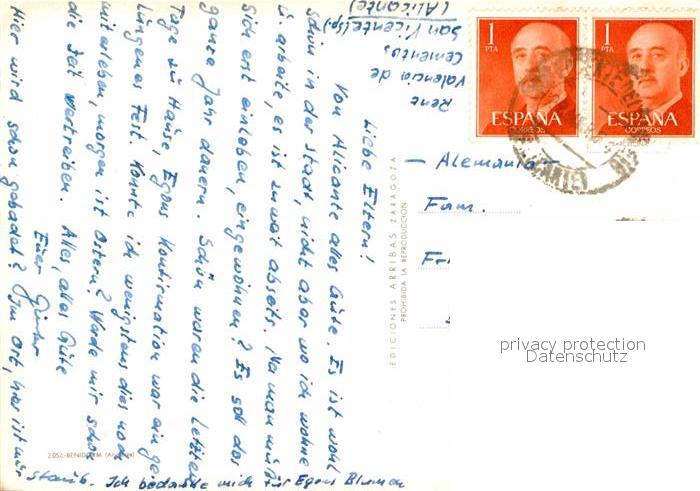 Liebe Eltern!
Von Alicante alles Gute. Es ist wohl
schön in der Stadt, nicht aber wo ich wohne
u. arbeite, es ist zu weit abseits. Na man muß
sich erst einleben, eingewöhnen? Es soll das
ganze Jahr dauern. Schön waren die letzten
Tage zu Hause, Egons Konfirmation war ein ge-
lungenes Fest. Konnte ich wenigstens dies noch
miterleben, morgen ist Ostern? Werde mir schon
die Zeit vertreiben. Alles, alles Gute
Euer Günter
Hier wird schon gebadet? Im Ort, hier ist nur
Staub. Ich bedanke mich für Egons Blumen
Rene
Valencia de
Cementos
San Vicente (Sp.)
(Alicante)
2.052-BENIDORM
EDICIONES ARRIBAS ZARAGOZA
PROHIBIDA LA REPRODUCCION
1 PTA
ESPAÑA
CORREOS
1 PTA
ESPAÑA
CORREOS
- Alemania -
Fam.
privacy protection
Datenschutz